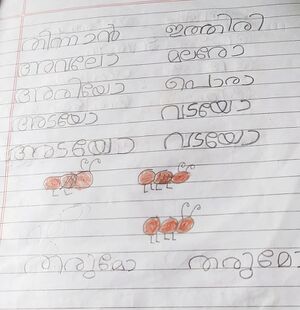 തിന്നാൻ ഇത്തിരി
അവലോ മലരോ
അരിയോ പൊരാ
അടയോ വടയോ
അടയോ വടയോ
തരുമോ തരുമോ